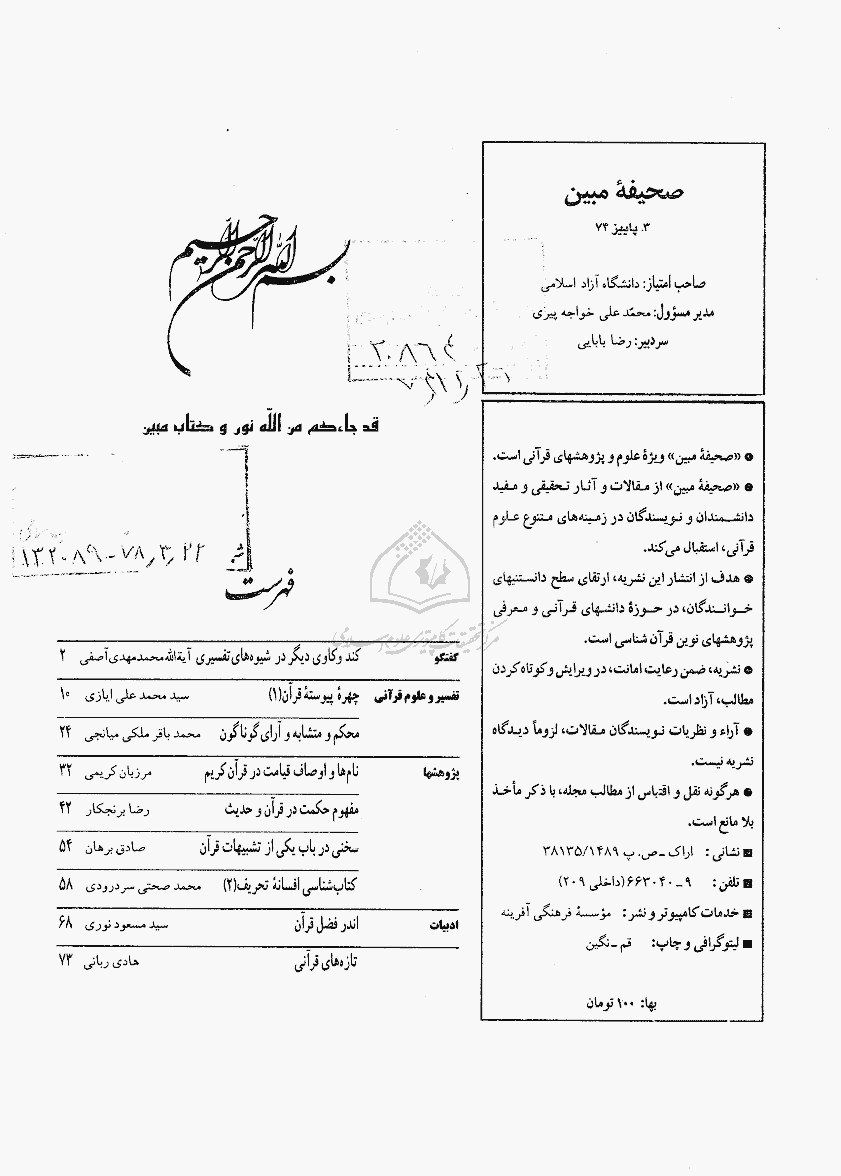 صحیفهٔ مبین
۳. پاییز ۷۴
صاحب امتیاز: دانشگاه آزاد اسلامی
مدیر مسؤول: محمّد علی خواجه پیری
سردبیر: رضا بابایی
● «صحیفهٔ مبین» ویژهٔ علوم و پژوهشهای قرآنی است.
● «صحیفهٔ مبین» از مقالات و آثار تحقیقی و مفید
دانشمندان و نویسندگان در زمینه‌های متنوع علوم
قرآنی، استقبال می‌کند.
● هدف از انتشار این نشریه، ارتقای سطح دانستنیهای
خوانندگان، در حوزهٔ دانشهای قرآنی و معرفی
پژوهشهای نوین قرآن شناسی است.
● نشریه، ضمن رعایت امانت، در ویرایش و کوتاه کردن
مطالب، آزاد است.
● آراء و نظریات نویسندگان مقالات، لزوماً دیدگاه
نشریه نیست.
● هرگونه نقل و اقتباس از مطالب مجله، با ذکر مأخذ
بلا مانع است.
■ نشانی: اراک ـ ص. پ ۳۸۱۳۵/۱۴۸۹
■ تلفن: ۹ ـ ۶۶۳۰۴۰ (داخلی ۲۰۹)
■ خدمات کامپیوتر و نشر: مؤسسهٔ فرهنگی آفرینه
■ لیتوگرافی و چاپ: قم ـ نگین
بها: ۱۰۰ تومان
بسم الله الرحمن الرحیم
قد جاءکم من الله نور و کتاب مبین
۱۳۲۰۸۹ - ۷۸٫۳٫۲۲
فهرست
مرکز تحقیقات کامپیوتری علوم اسلامی
گفتگو کند و کاوی دیگر در شیوه‌های تفسیری آیةالله محمدمهدی آصفی ۲
تفسیر و علوم قرآنی چهرهٔ پیوستهٔ قرآن(۱) سید محمد علی ایازی ۱۰
محکم و متشابه و آرای گوناگون محمد باقر ملکی میانجی ۲۴
پژوهشها نام‌ها و اوصاف قیامت در قرآن کریم مرزبان کریمی ۳۲
مفهوم حکمت در قرآن و حدیث رضا برنجکار ۴۲
سخنی در باب یکی از تشبیهات قرآن صادق برهان ۵۴
کتاب‌شناسی افسانهٔ تحریف(۲) محمد صحتی سردرودی ۵۸
ادبیات اندر فضل قرآن سید مسعود نوری ۶۸
تازه‌های قرآنی هادی ربانی ۷۳